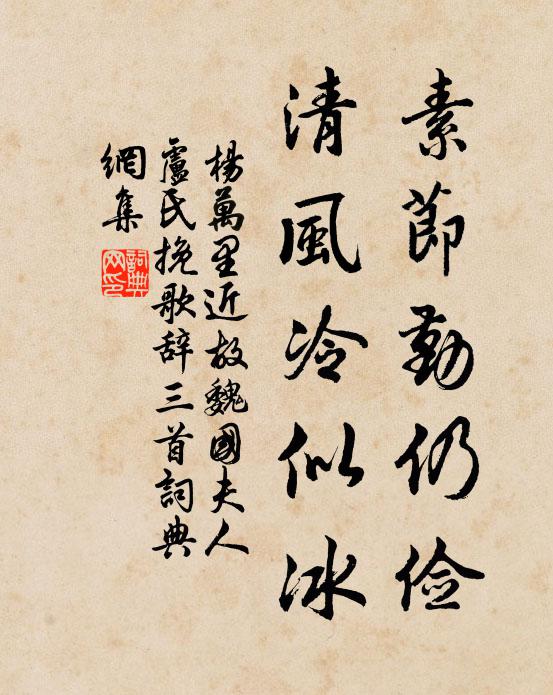 素節勤仍儉
清風冷似冰
楊萬里近故魏國夫人
盧氏挽歌辞三首詞典
網集
詞典
网印